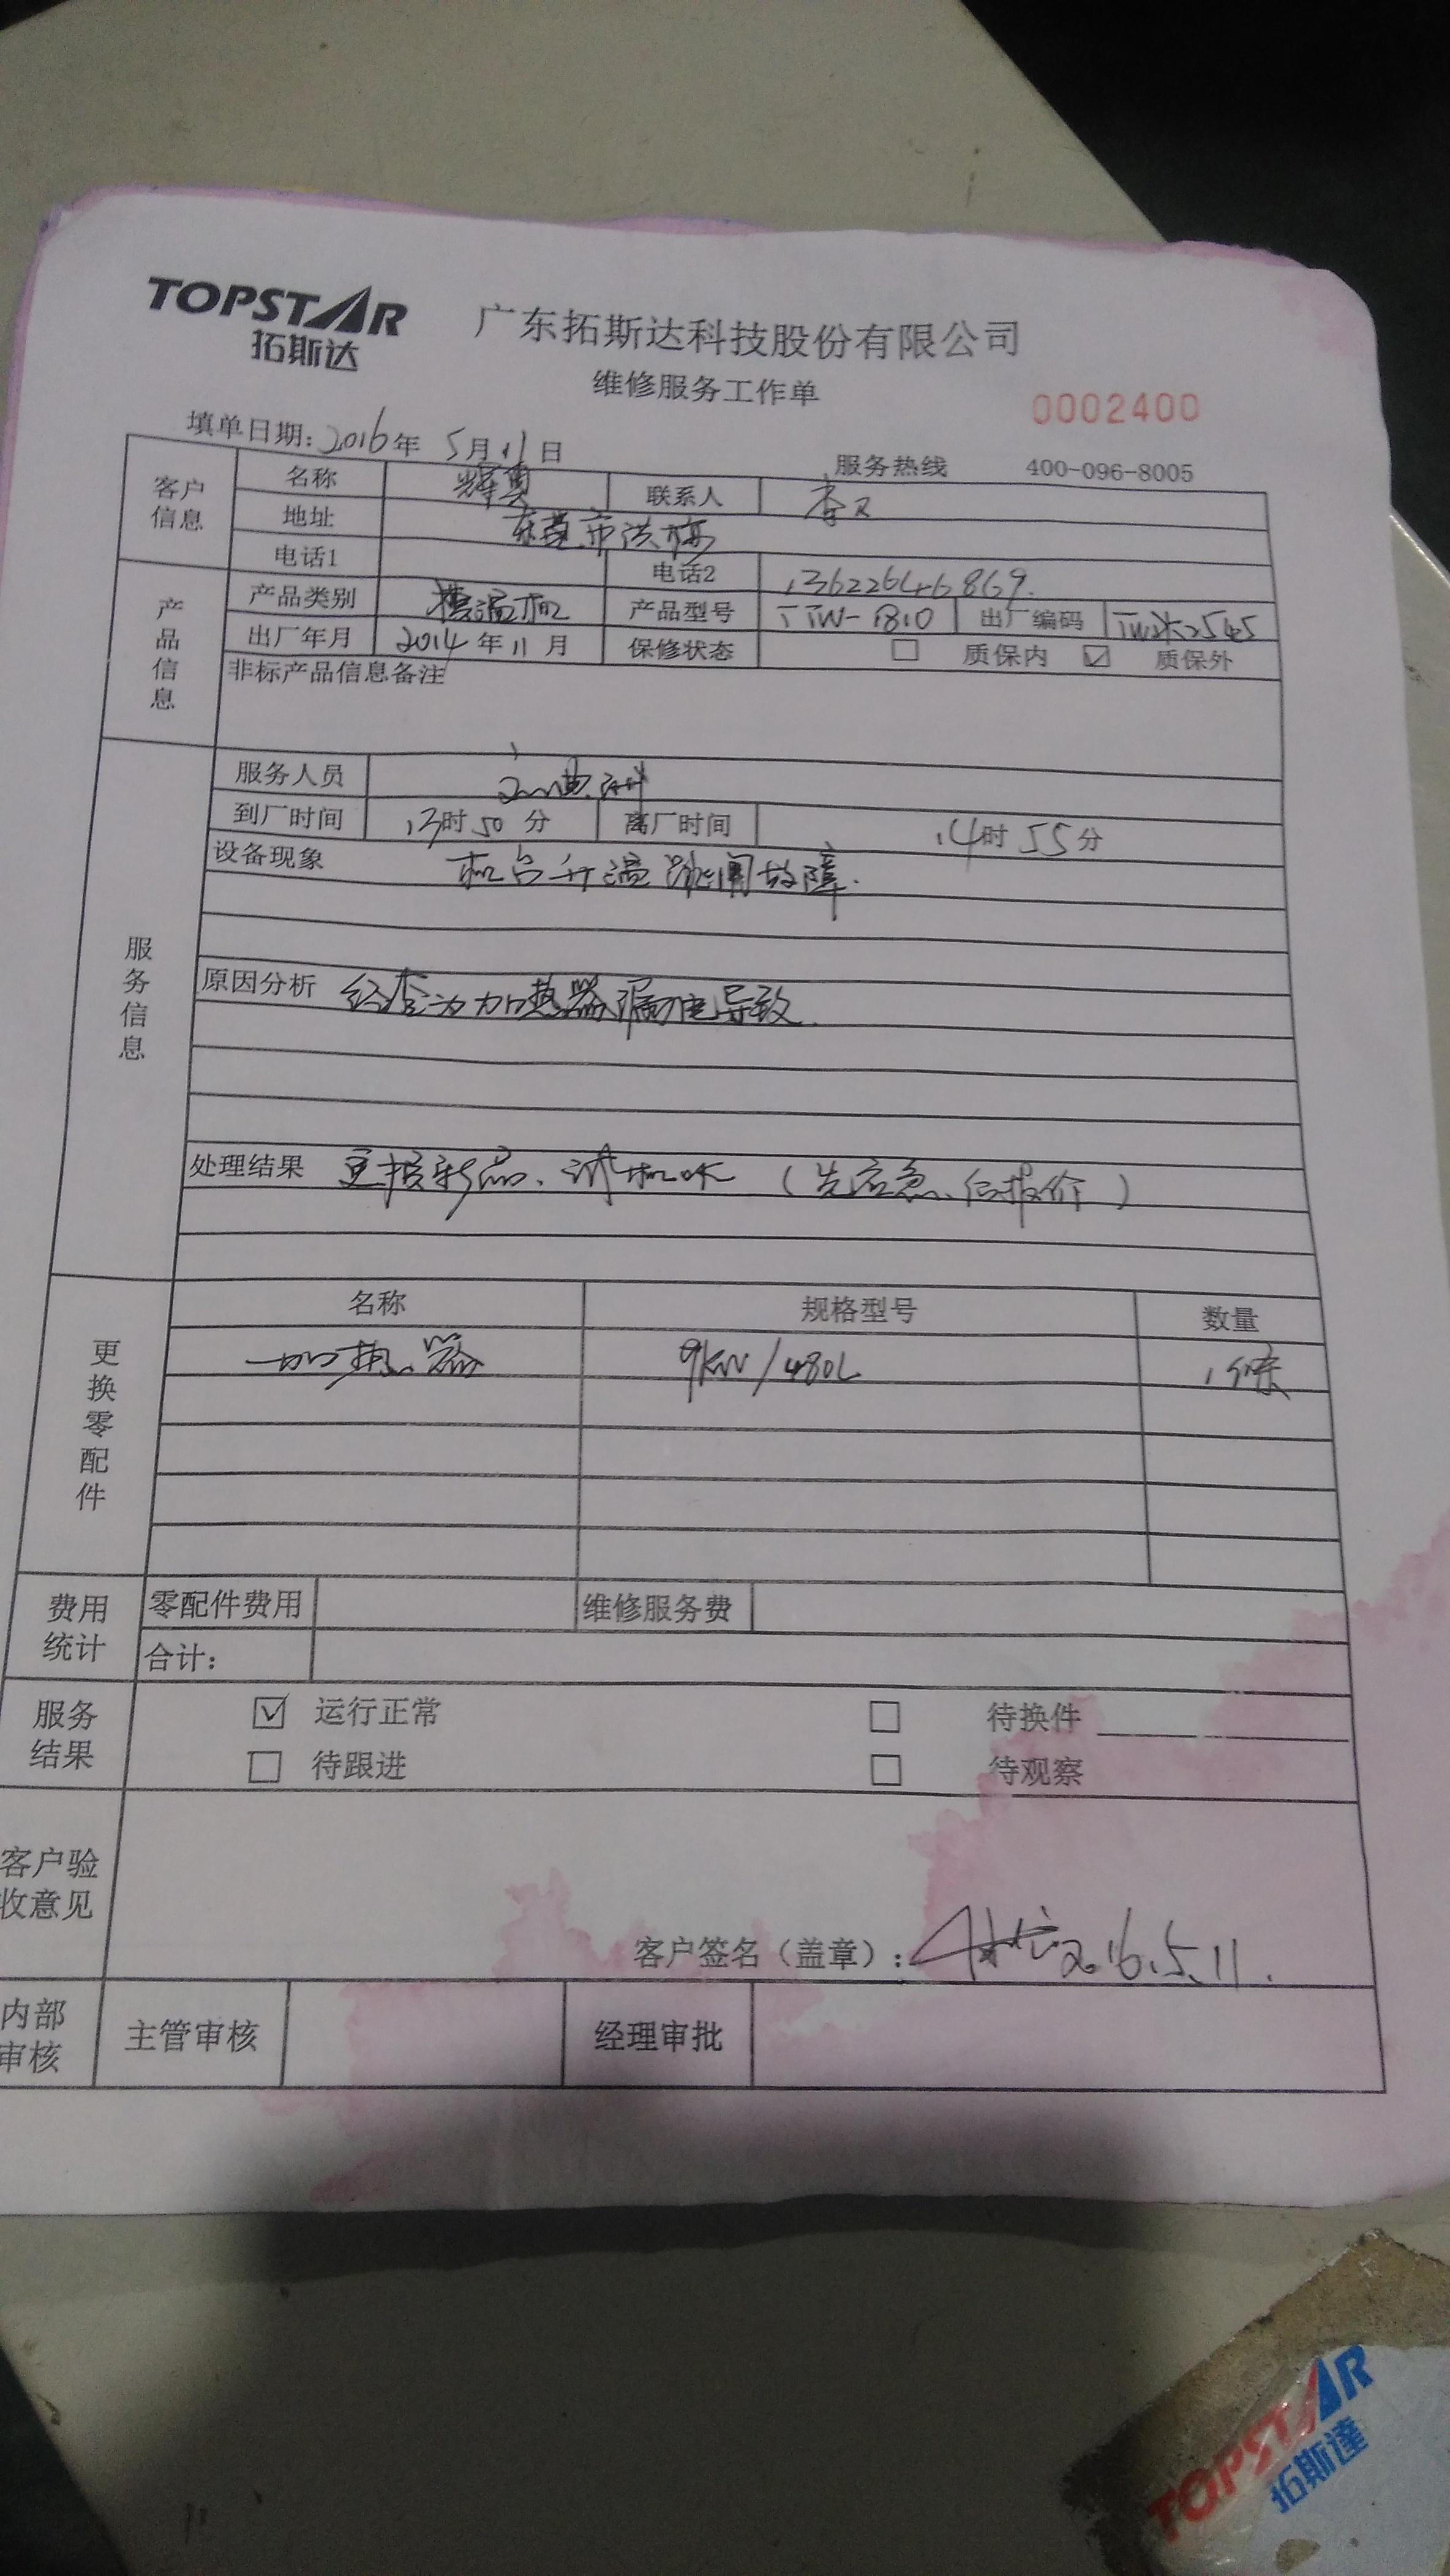 TOPSTAR
拓斯达
广东拓斯达科技股份有限公司
维修服务工作单
0002400
填单日期: 2016年 5月11日
服务热线 400-096-8005
客户信息
名称 辉奥 联系人 李
地址 东莞市洪梅
电话1 电话2 13622646869.
产品信息
产品类别 模温机 产品型号 TTW-1810 出厂编码
出厂年月 2014年11月 保修状态 □ 质保内 ☑ 质保外
非标产品信息备注
服务信息
服务人员
到厂时间 13时50分 离厂时间 14时55分
设备现象 机台升温跳闸故障.
原因分析 经查为加热器漏电导致.
处理结果 更换新品、试机OK (先应急、后报价)
更换零配件
名称 规格型号 数量
加热器 9KW/480L 1
费用统计
零配件费用 维修服务费
合计:
服务结果
☑ 运行正常 □ 待换件
□ 待跟进 □ 待观察
客户验收意见
客户签名(盖章): 2016.5.11.
内部审核 主管审核 经理审批
TOPSTAR
拓斯達